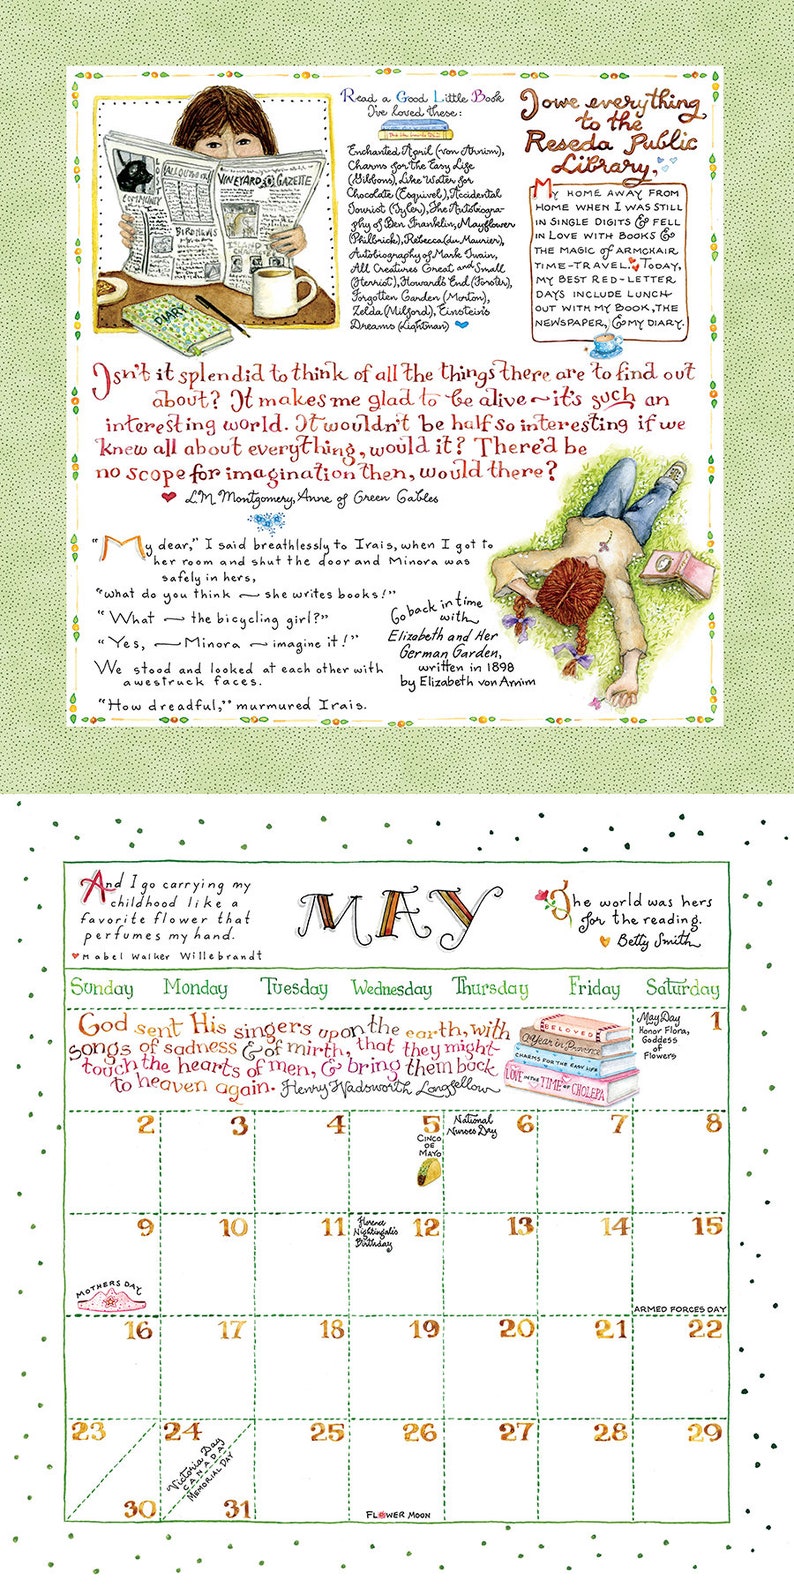 Read a Good Little Book
I've loved these:
Enchanted April (von Arnim),
Charms for the Easy Life
(Gibbons), Like Water for
Chocolate (Esquivel), Accidental
Tourist (Tyler), The Autobiogra-
phy of Ben Franklin, Mayflower
(Philbrick), Rebecca (du Maurier),
Autobiography of Mark Twain,
All Creatures Great and Small
(Herriot), Howard's End (Forster),
Forgotten Garden (Morton),
Zelda (Milford), Einstein's
Dreams (Lightman)
I owe everything
to the
Reseda Public
Library,
My home away from
home when I was still
in single digits & fell
in love with books &
the magic of armchair
time-travel. Today,
my best red-letter
days include lunch
out with my book, the
newspaper, & my diary.
VINEYARD GAZETTE
COMMUNITY
BIRD NEWS
ISLAND
DIARY
Isn't it splendid to think of all the things there are to find out
about? It makes me glad to be alive ~ it's such an
interesting world. It wouldn't be half so interesting if we
knew all about everything, would it? There'd be
no scope for imagination then, would there?
LM Montgomery, Anne of Green Gables
"My dear," I said breathlessly to Irais, when I got to
her room and shut the door and Minora was
safely in hers,
"what do you think ~ she writes books!"
"What ~ the bicycling girl?"
"Yes, ~ Minora ~ imagine it!"
We stood and looked at each other with
awestruck faces.
"How dreadful," murmured Irais.
Go back in time
with
Elizabeth and Her
German Garden,
written in 1898
by Elizabeth von Arnim
And I go carrying my
childhood like a
favorite flower that
perfumes my hand.
Mabel Walker Willebrandt
MAY
The world was hers
for the reading.
Betty Smith
Sunday Monday Tuesday Wednesday Thursday Friday Saturday
God sent His singers upon the earth, with
songs of sadness & of mirth, that they might
touch the hearts of men, & bring them back
to heaven again. Henry Wadsworth Longfellow
BELOVED
A Year in Provence
CHARMS FOR THE EASY LIFE
LOVE IN THE TIME OF CHOLERA
May Day
Honor Flora,
Goddess
of
Flowers
1
2 3 4 5 6 7 8
CINCO
DE
MAYO
National
Nurses Day
9 10 11 12 13 14 15
MOTHERS DAY
Florence
Nightingale's
Birthday
ARMED FORCES DAY
16 17 18 19 20 21 22
23 24 25 26 27 28 29
Victoria Day
CANADA
MEMORIAL DAY
30 31
FLOWER MOON